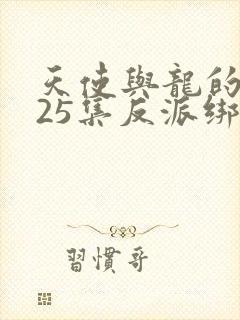 天使與龍的
25集反派綁
習慣哥